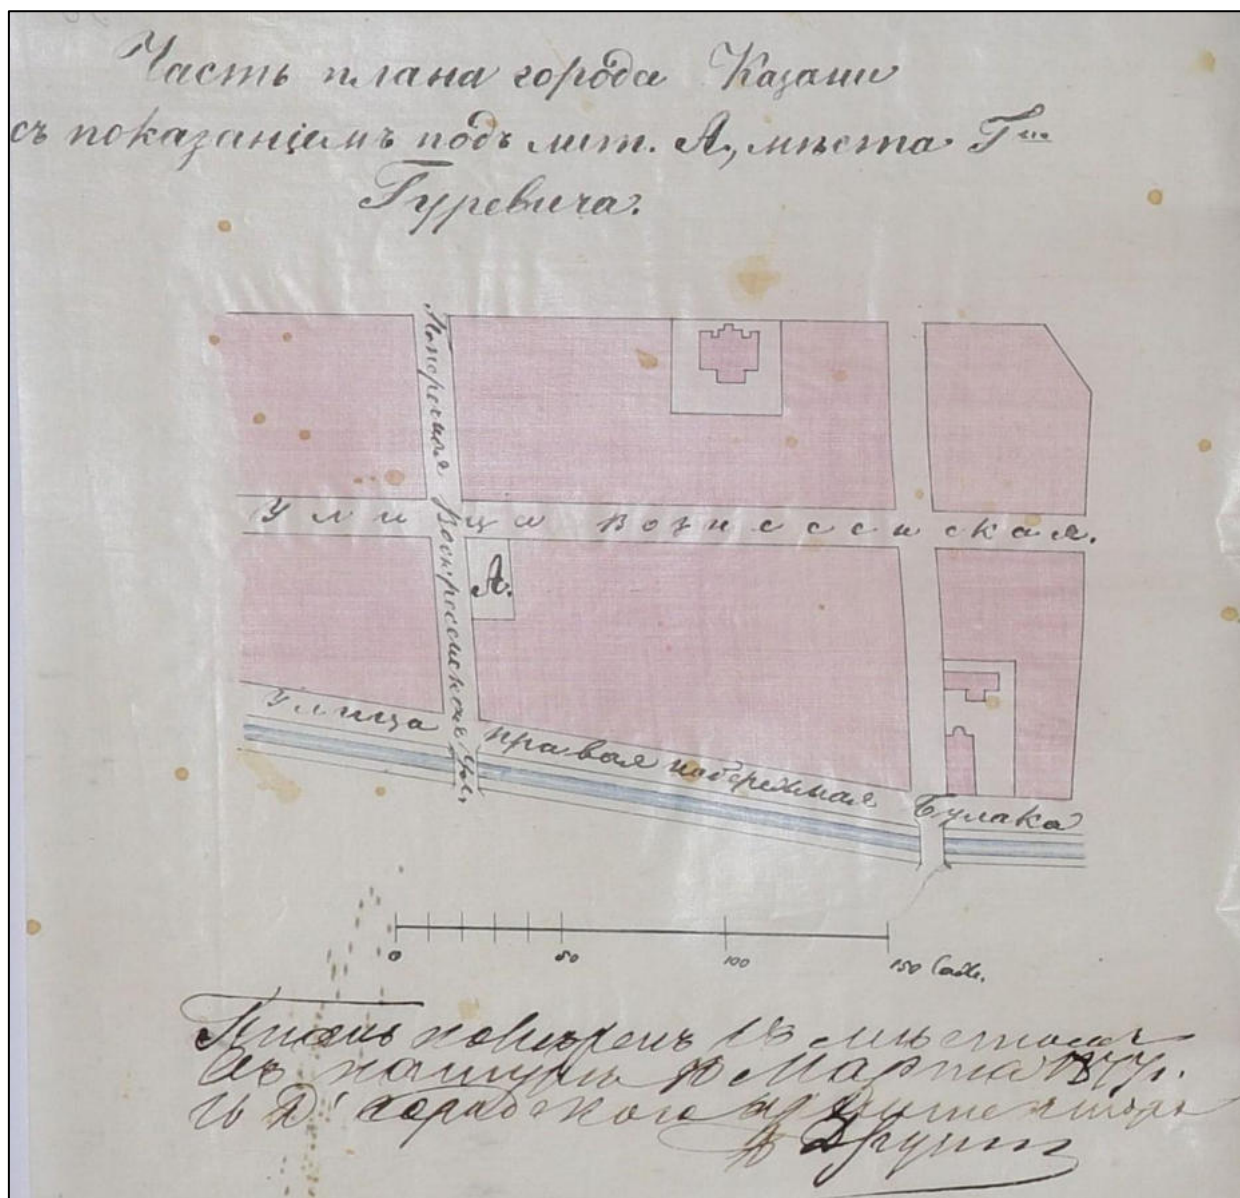 Часть плана города Казани
съ показаніемъ подъ лит. А, мѣста Г-на
Гуревича.
Поперечная Воскресенской ул.
Улица Вознесенская.
А.
Улица правая набережная Булака
0 50 100 150 Саж.
Планъ повѣренъ съ мѣстомъ
въ натурѣ Марта 1877 г.
И Д городского архитектора